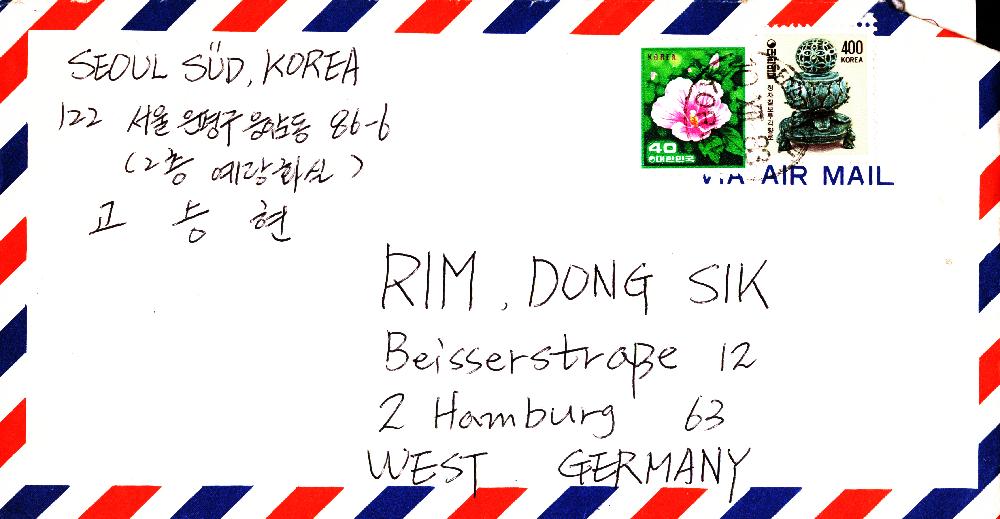 SEOUL SÜD, KOREA
122 서울 은평구 응암동 86-6
(2층 예랑화실)
고 승 현
KOREA
40
대한민국
400
KOREA
대한민국
VIA AIR MAIL
RIM, DONG SIK
Beisserstraße 12
2 Hamburg 63
WEST GERMANY